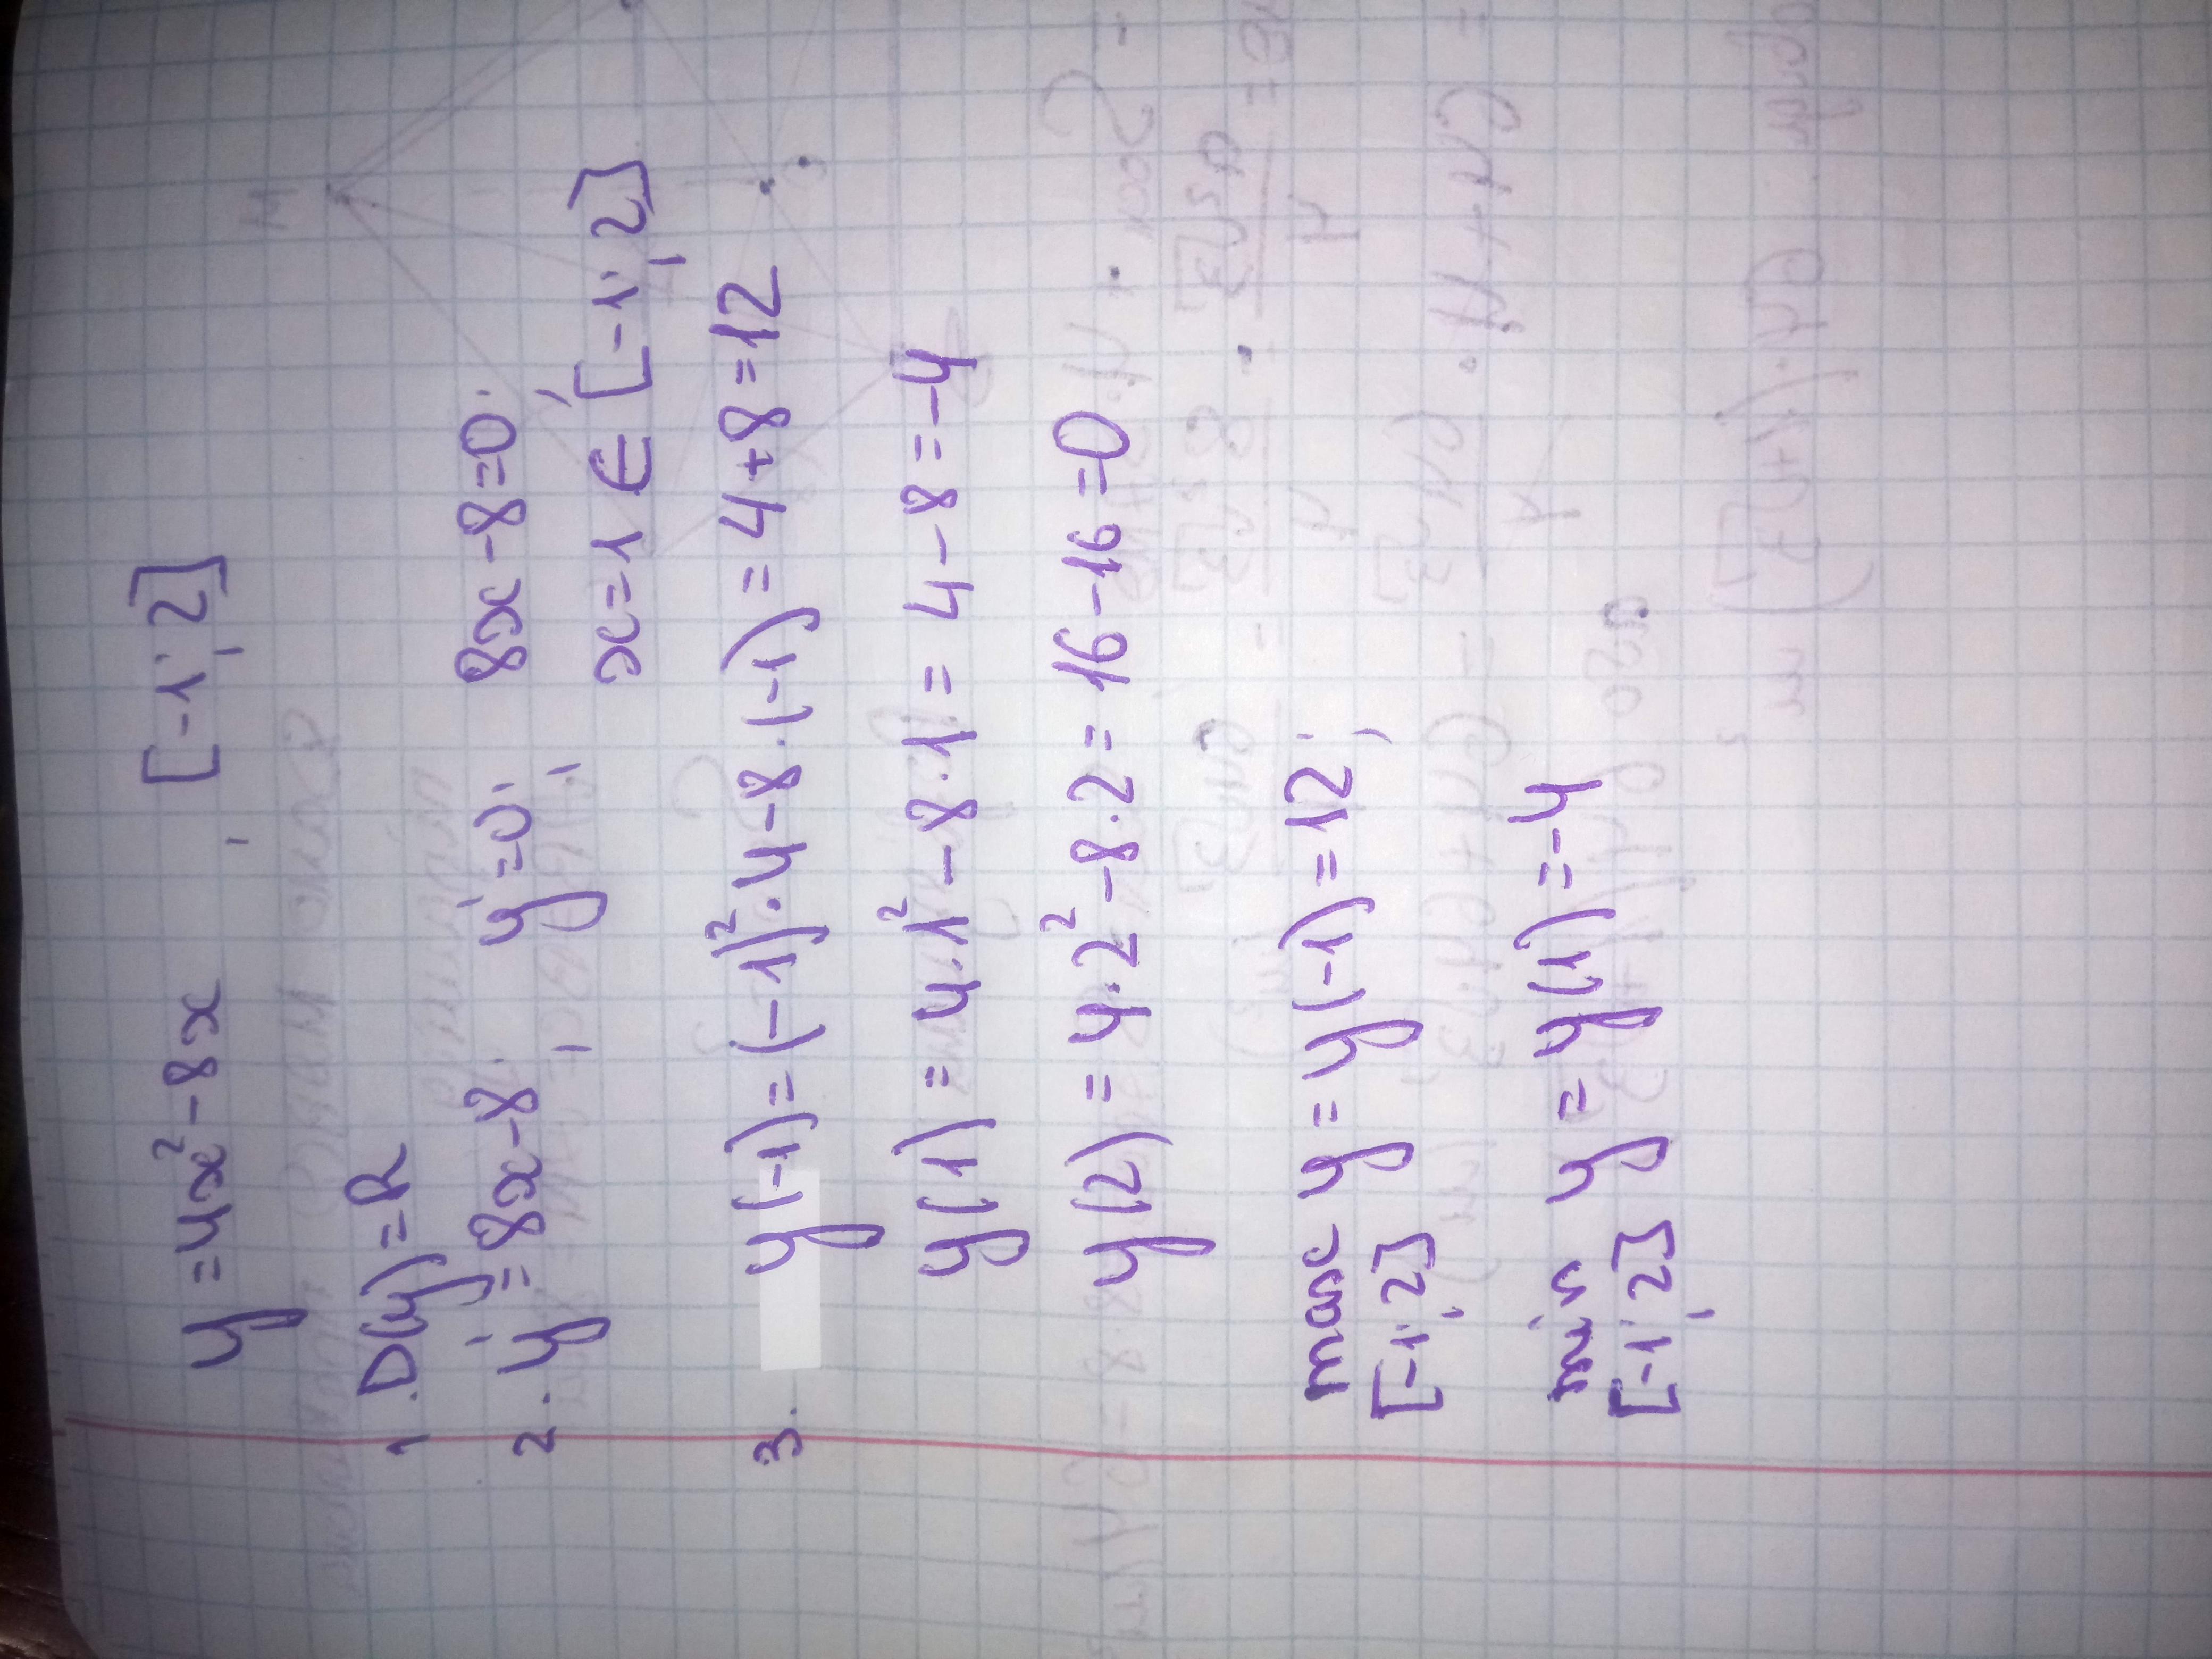 y = 4x² - 8x , [-1; 2]
1. D(y) = R
2. y' = 8x - 8; y' = 0; 8x - 8 = 0;
x = 1 ∈ [-1; 2]
3. y(-1) = (-1)² · 4 - 8 · (-1) = 4 + 8 = 12
y(1) = 4 · 1² - 8 · 1 = 4 - 8 = -4
y(2) = 4 · 2² - 8 · 2 = 16 - 16 = 0
max y = y(-1) = 12;
[-1; 2]
min y = y(1) = -4
[-1; 2]